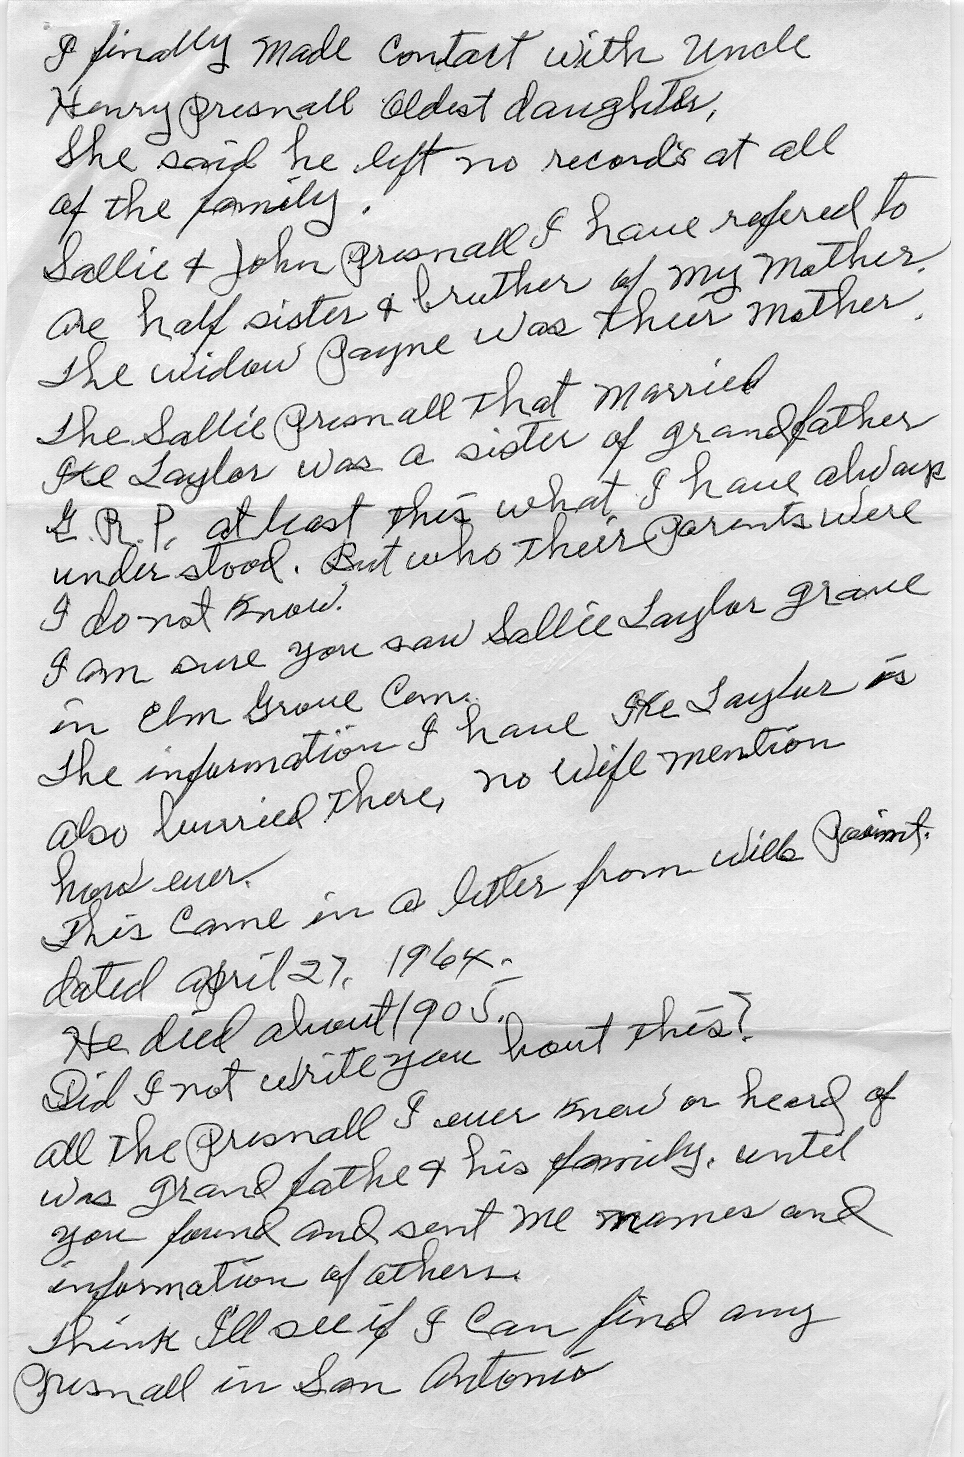 I finally made contact with Uncle
Henry Presnall oldest daughter,
She said he left no records at all
of the family.
Sallie & John Presnall I have refered to
are half sister & bruther of my mother.
The widow Payne was their mother.
The Sallie Presnall that married
Ike Taylor was a sister of grandfather
G. R. P. at least this what I have always
under stood. But who their parents were
I do not know.
I am sure you saw Sallie Taylor grave
in Elm Grove Cem.
The information I have Ike Taylor is
also burried there, no wife mention
how ever.
This came in a letter from Will
dated april 27, 1964.
He died about 1905.
Did I not write you bout this?
all the Presnall I ever knew or heard of
was grand fathe & his family. until
you found and sent me names and
information of others.
Think I'll see if I can find any
Presnall in San Antonio